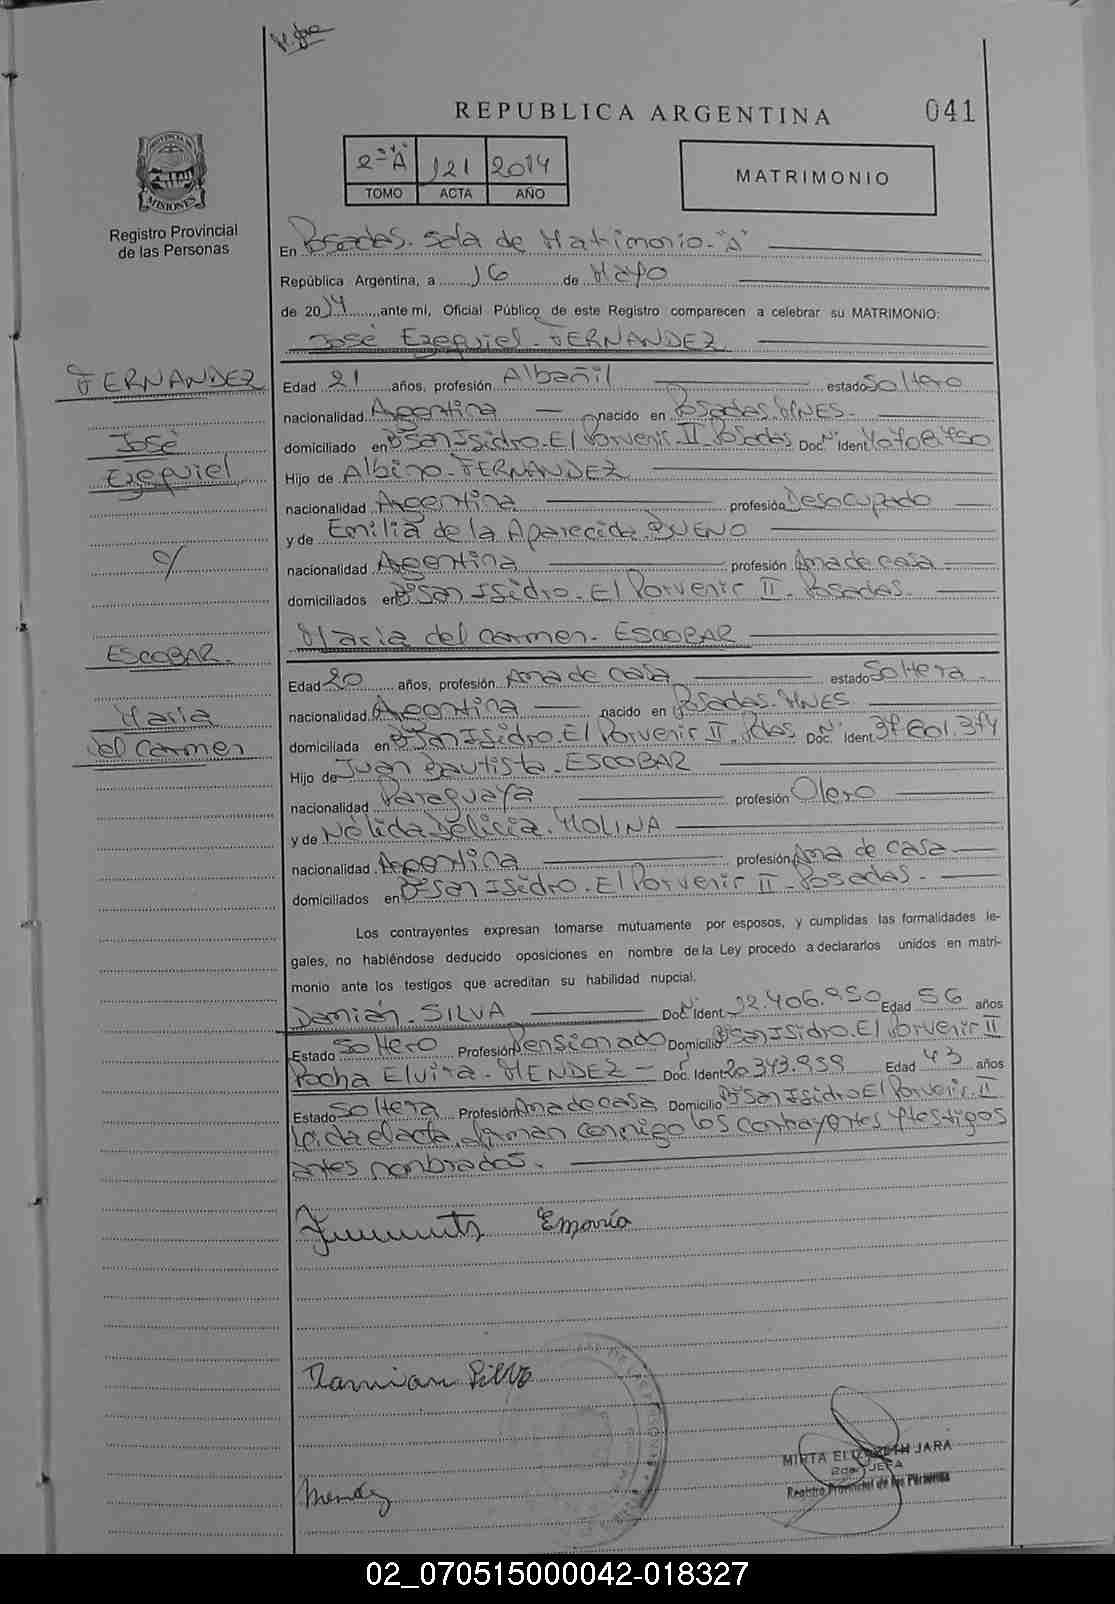 REPUBLICA ARGENTINA
041
2º "A" 121 2014
TOMO ACTA AÑO
MATRIMONIO
MISIONES
Registro Provincial
de las Personas
En Posadas. Sala de Matrimonio-"A"
República Argentina, a 16 de Mayo
de 2014, ante mi, Oficial Público de este Registro comparecen a celebrar su MATRIMONIO:
José Ezequiel FERNANDEZ
FERNANDEZ
José
Ezequiel
c/
ESCOBAR.
Maria
del carmen
Edad 21 años, profesión Albañil estado Soltero
nacionalidad Argentina nacido en Posadas. MNES.
domiciliado en Bº San Isidro. El Porvenir II Posadas Doc. Nº Ident.
Hijo de Albino FERNANDEZ
nacionalidad Argentina profesión Desocupado
y de Emilia de la Aparecida BUENO
nacionalidad Argentina profesión Ama de casa
domiciliados en Bº San Isidro. El Porvenir II - Posadas.
Maria del carmen. ESCOBAR
Edad 20 años, profesión Ama de casa estado Soltera.
nacionalidad Argentina nacido en Posadas. MNES
domiciliada en Bº San Isidro. El Porvenir II Pdas Doc. Nº Ident.
Hijo de Juan Bautista. ESCOBAR
nacionalidad Paraguaya profesión Olero
y de Nélida Delicia. MOLINA
nacionalidad Argentina profesión Ama de casa
domiciliados en Bº San Isidro. El Porvenir II - Posadas.
Los contrayentes expresan tomarse mutuamente por esposos, y cumplidas las formalidades le-
gales, no habiéndose deducido oposiciones en nombre de la Ley procedo a declararlos unidos en matri-
monio ante los testigos que acreditan su habilidad nupcial.
Damián. SILVA Doc. Nº Ident. 22.406.950 Edad 56 años
Estado Soltero Profesión Pensionado Domicilio Bº San Isidro. El Porvenir II
Pocha Elvira. MENDEZ Doc. Nº Ident. 20.343.939 Edad 43 años
Estado Soltera Profesión Ama de casa Domicilio Bº San Isidro El Porvenir. II
Leida el acta, firman conmigo los contrayentes y testigos
antes nombrados.
Emaría
Damian Silva
Mendez
MIRTA ELIZABETH JARA
2da. JEFA
Registro Provincial de las Personas
02_070515000042-018327